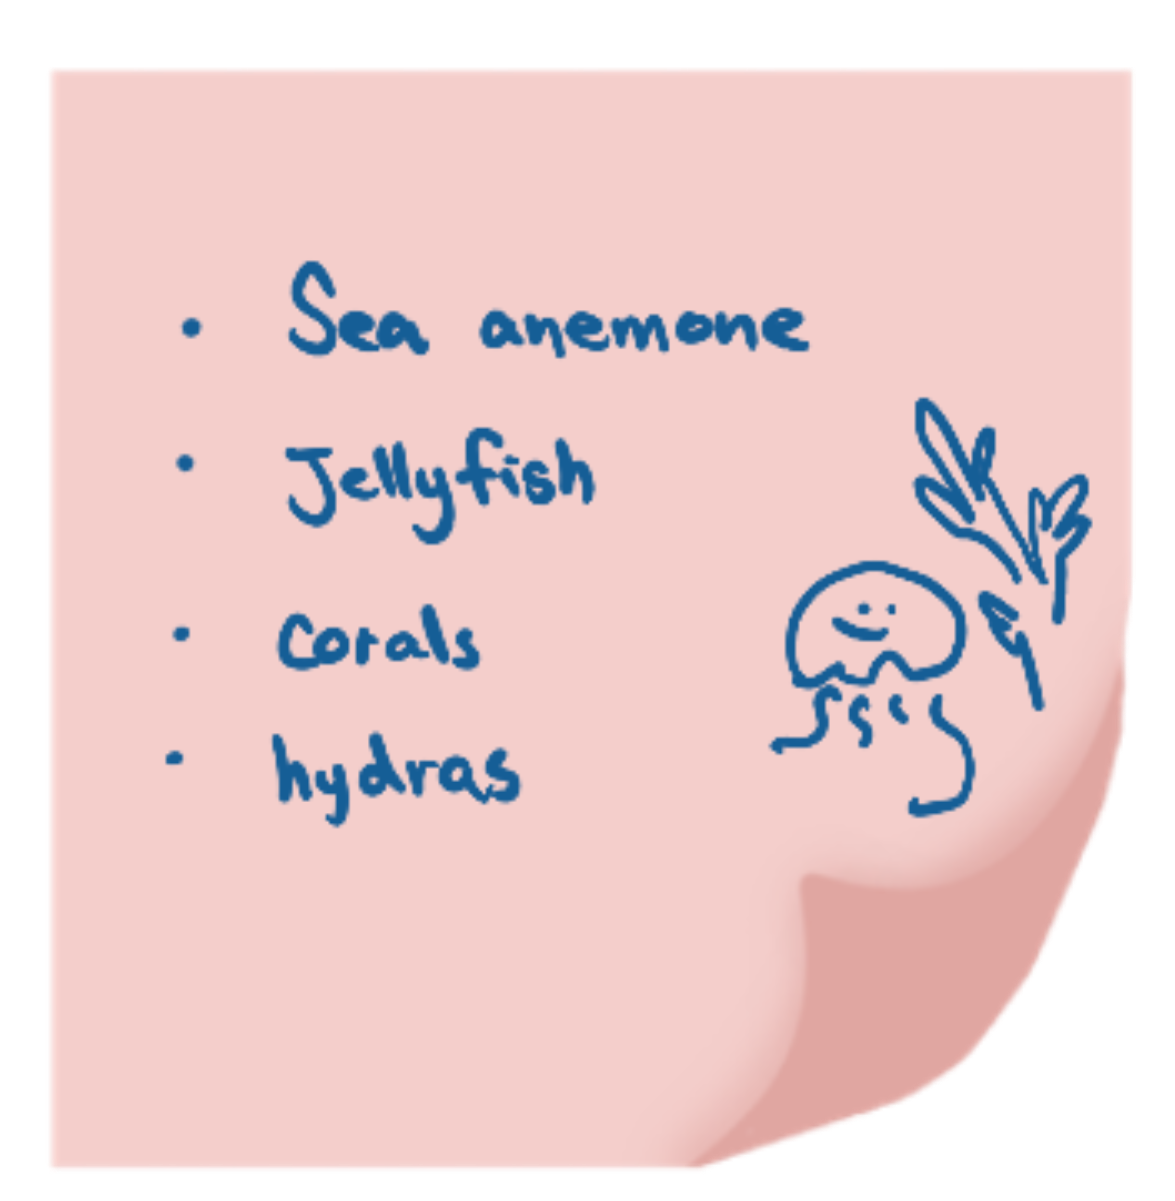 • Sea anemone
• Jellyfish
• corals
• hydras